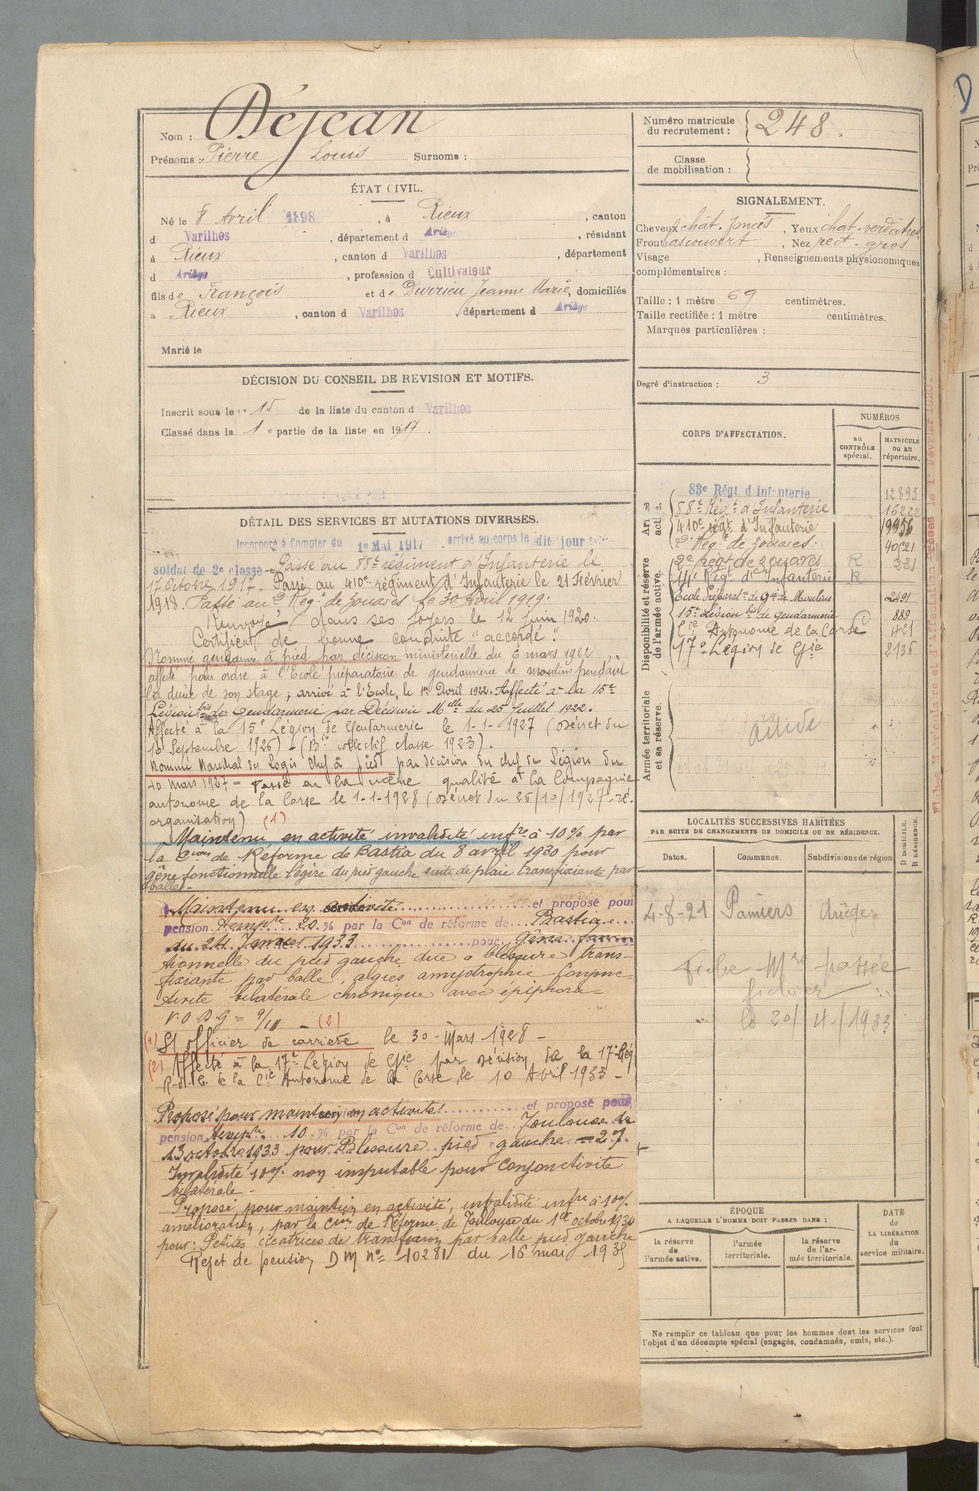 Nom : Déjean
Prénoms : Pierre Louis Surnoms :
ÉTAT CIVIL.
Né le 8 Avril 1898, à Rieux, canton
d Varilhes, département d Ariège, résidant
à Rieux, canton d Varilhes, département
d Ariège, profession d Cultivateur
fils de François et de Durrieu Jeanne Marie, domiciliés
à Rieux, canton d Varilhes, département d Ariège
Marié le
DÉCISION DU CONSEIL DE REVISION ET MOTIFS.
Inscrit sous le n° 15 de la liste du canton d Varilhes
Classé dans la 1e partie de la liste en 1917.
DÉTAIL DES SERVICES ET MUTATIONS DIVERSES.
Incorporé à Compter du 1er Mai 1917 arrivé au corps le dit jour
soldat de 2e classe Passé au 58e régiment d'Infanterie le
17 Octobre 1917. Passé au 410e régiment d'Infanterie le 21 Février
1918. Passé au 2e Régt de Zouaves le 30 Avril 1919.
Renvoyé dans ses foyers le 12 Juin 1920.
Certificat de bonne conduite "accordé".
Nommé gendarme à pied par décision ministérielle du 6 mars 1922,
affecté pour ordre à l'Ecole préparatoire de gendarmerie de moulins pendant
la durée de son stage; arrivé à l'Ecole, le 1er Avril 1922. Affecté à la 15e
Légion bis de Gendarmerie par Décision Mlle du 25 Juillet 1922.
Affecté à la 15e Légion de Gendarmerie le 1-1-1927 (décret du
10 Septembre 1926) - (Bis effectif classe 1923).
Nommé Maréchal des Logis Chef à pied par décision du chef de Légion du
20 mars 1927 - Passé en la même qualité à la Compagnie
autonome de la Corse le 1-1-1928 (décret du 26/10/1927 ré-
organisation) (1)
Maintenu en activité invalidité infre à 10% par
la Con de Réforme de Bastia du 8 avril 1930 pour
gêne fonctionnelle légère du pied gauche suite de plaie transfixiante par
balle.
Maintenu en activité et proposé pour
pension temp're 20 % par la Con de réforme de Bastia
du 24 Janvier 1933 pour Gêne fonc-
tionnelle du pied gauche due à blessure trans-
fixiante par balle, algies amyotrophie Conjonc-
tivite bilatérale chronique avec épiphora
V.O.D.G = 9/10 - (2)
(1) S/ officier de carrière le 30 Mars 1928 -
(2) Affecté à la 17e Légion de Gie par décision de la 17e Rég
R.d.C. de la Cie Autonome de la Corse, le 10 Avril 1933 -
Proposé pour maintien en activité et proposé pour
pension temp're 10 % par la Con de réforme de Toulouse du
13 octobre 1933 pour Blessure pied gauche = 2°.
Invalidité 10% non imputable pour Conjonctivite
bilatérale -
Proposé pour maintien en activité, invalidité infre à 10%
amélioration, par la Con de Réforme de Toulouse du 1er octobre 1934
pour: Petites cicatrices de transfixion par balle pied gauche
Rejet de pension D M N° 10281 du 16 mai 1935
Numéro matricule du recrutement : 248.
Classe de mobilisation :
SIGNALEMENT.
Cheveux chât. foncés, Yeux chat. verdâtres
Front découvert, Nez rect. gros
Visage , Renseignements physionomiques
complémentaires :
Taille : 1 mètre 69 centimètres.
Taille rectifiée : 1 mètre centimètres.
Marques particulières :
Degré d'instruction : 3
CORPS D'AFFECTATION.
NUMÉROS
au CONTRÔLE spécial.
MATRICULE OU AU répertoire.
Armée active.
83e Régt d'infanterie 12895
58e Régt d'Infanterie 16222
410e régt d'Infanterie 19956
2e Régt de Zouaves. 40521
Disponibilité et réserve de l'armée active.
2e régt de zouaves R 331
Régt d'Infanterie R
Ecole Préparat. de Gie de Moulins 2491
15e Légion bis de Gendarmerie 889
Cie Autonome de la Corse 421
17e Légion de Gie 2136
Armée territoriale et sa réserve.
active
LOCALITÉS SUCCESSIVES HABITÉES
PAR SUITE DE CHANGEMENTS DE DOMICILE OU DE RÉSIDENCE.
D DOMICILE. R RÉSIDENCE.
Dates. Communes. Subdivisions de région
4-8-21 Pamiers Ariège
Fiche Mle passée
fichier
le 20/4/1933
ÉPOQUE
A LAQUELLE L'HOMME DOIT PASSER DANS :
la réserve de l'armée active.
l'armée territoriale.
la réserve de l'armée territoriale.
DATE de LA LIBÉRATION du service militaire.
Ne remplir ce tableau que pour les hommes dont les services font
l'objet d'un décompte spécial (engagés, condamnés, omis, etc.).